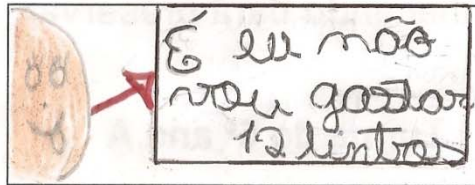 É eu não
vou gastar
12 lintros